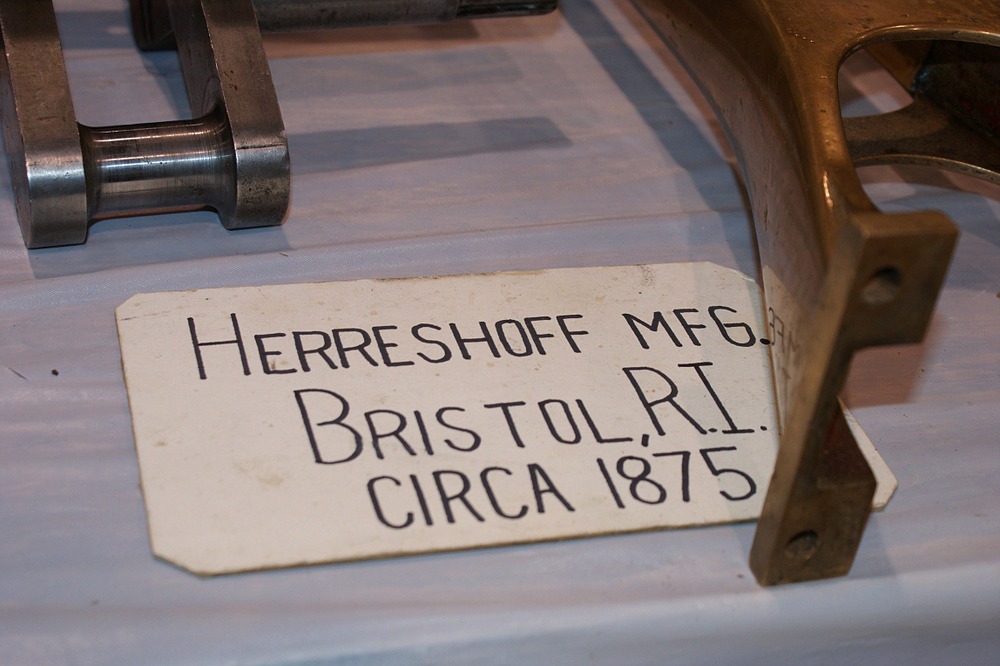 HERRESHOFF MFG.
BRISTOL, R.I.
CIRCA 1875